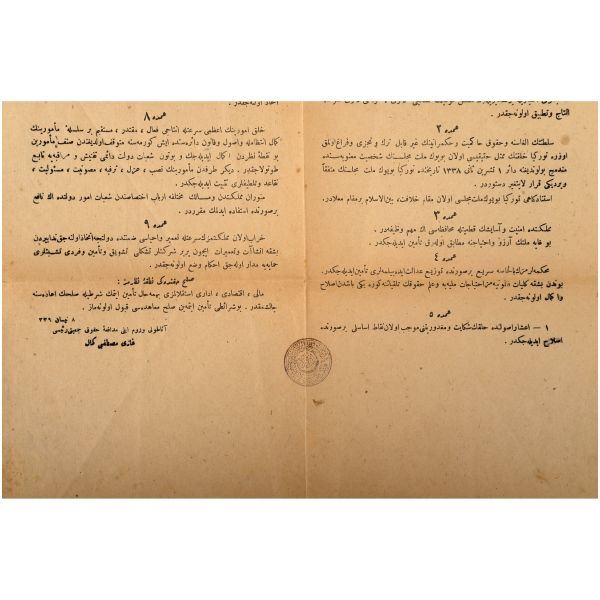 التاج وتطبیق اولونه‌جقدر .
عمده ٢
سلطنتك الغاسنه و حقوق حاكمیت و حكمرانینك غیر قابل ترك و تجزی و فراغ اولمق
اوزره توركیا خلقنك ممثل حقیقیسی اولان بویوك ملت مجلسنك شخصیت معنویه‌سنده
مندمج بولوندیغنه دائر ١ تشرین ثانی ١٣٣٨ تاریخنده توركیا بویوك ملت مجلسنك متفقاً
ویردیكی قرار لایتغیر دستوردر .
استنادكاهی توركیا بویوك ملت مجلسی اولان مقام خلافت، بین الاسلام بر مقام معلادر .
عمده ٣
مملكتده امنیت و آسایشك قطعیتله محافظه‌سی اك مهم وظیفه‌در .
بو غایه ملتك آرزو و احتیاجنه مطابق اوله‌رق تأمین ایدیله‌جكدر .
عمده ٤
محكمه‌لرمزك بالخاصه سریع بر صورتده توزیع عدالت ایده‌بیلمه‌لری تأمین ایدیله‌جكدر .
بوندن بشقه كلیات قانونیه‌مز احتیاجات ملیه و علم حقوقك تلقیاتنه كوره یكی باشدن اصلاح
و اكمال اولونه‌جقدر .
عمده ٥
١ — اعشار اصولنده خلقك شكایت و مغدوریتنی موجب اولان نقاط اساسلی بر صورتده
اصلاح ایدیله‌جكدر .
اتخاذ اولونه‌جقدر .
عمده ٨
خلق امورینك اعظمی سرعتله انتاجی فعال ، مقتدر ، مستقیم بر سلسلۀ مأمورینك
كمال انتظامله و اصول و قانون دائره‌سنده ایش كورمه‌سنه متوقف اولدیغندن صنف مأمورین
بو نقطۀ نظردن اكمال ایدیله‌جك و بوتون شعبات دولت دائمی تفتیش و مراقبه‌یه تابع
طوتولاجقدر . دیكر طرفدن مأمورینك نصب ، عزل ، ترفیه ، مصونیت ، مسئولیت ،
تقاعد و تلطیفلری تثبیت ایدیله‌جكدر .
منوران مملكتدن و مسالك مختلفه اربابی اختصاصندن شعبات امور دولتده اك نافع
بر صورتده استفاده ایدیلمك مقرردر .
عمده ٩
خراب اولان مملكتمزك سرعتله تعمیر و احیاسی ضمننده دولتجه اتخاذ اوله‌جق تدابیردن
بشقه انشاآت و تعمیرات ایچون یر یر شركتلر تشكلی تشویق و تأمین و فردی تشبثلری
حمایه‌یه مدار اوله‌جق احكام وضع اولونه‌جقدر .
صلح حقنده‌كی نقطۀ نظرمز :
مالی ، اقتصادی ، اداری استقلالمزی بهمه‌حال تأمین ایتمك شرطیله صلحك اعاده‌سنه
چالیشمقدر . بو شرائطی تأمین ایتمه‌ین صلح معاهده‌سی قبول اولونه‌ماز .
٨ نیسان ٣٣٩
آناطولی و روم ایلی مدافعۀ حقوق جمعیتی رئیسی
غازی مصطفی كمال